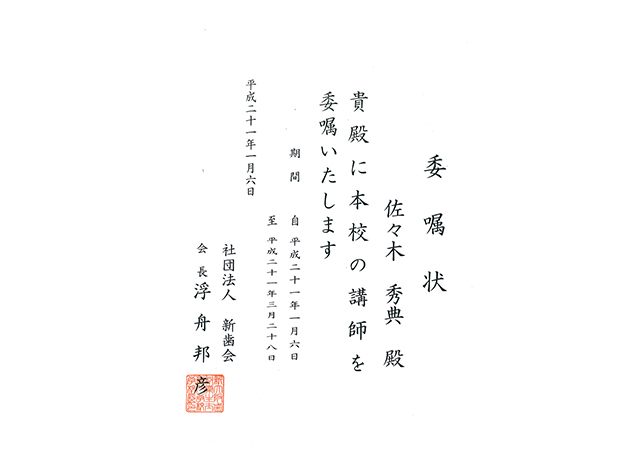 委嘱状
佐々木 秀典 殿
貴殿に本校の講師を
委嘱いたします
期間 自 平成二十一年一月六日
至 平成二十一年三月二十八日
平成二十一年一月六日
社団法人 新歯会
会長 浮舟邦彦